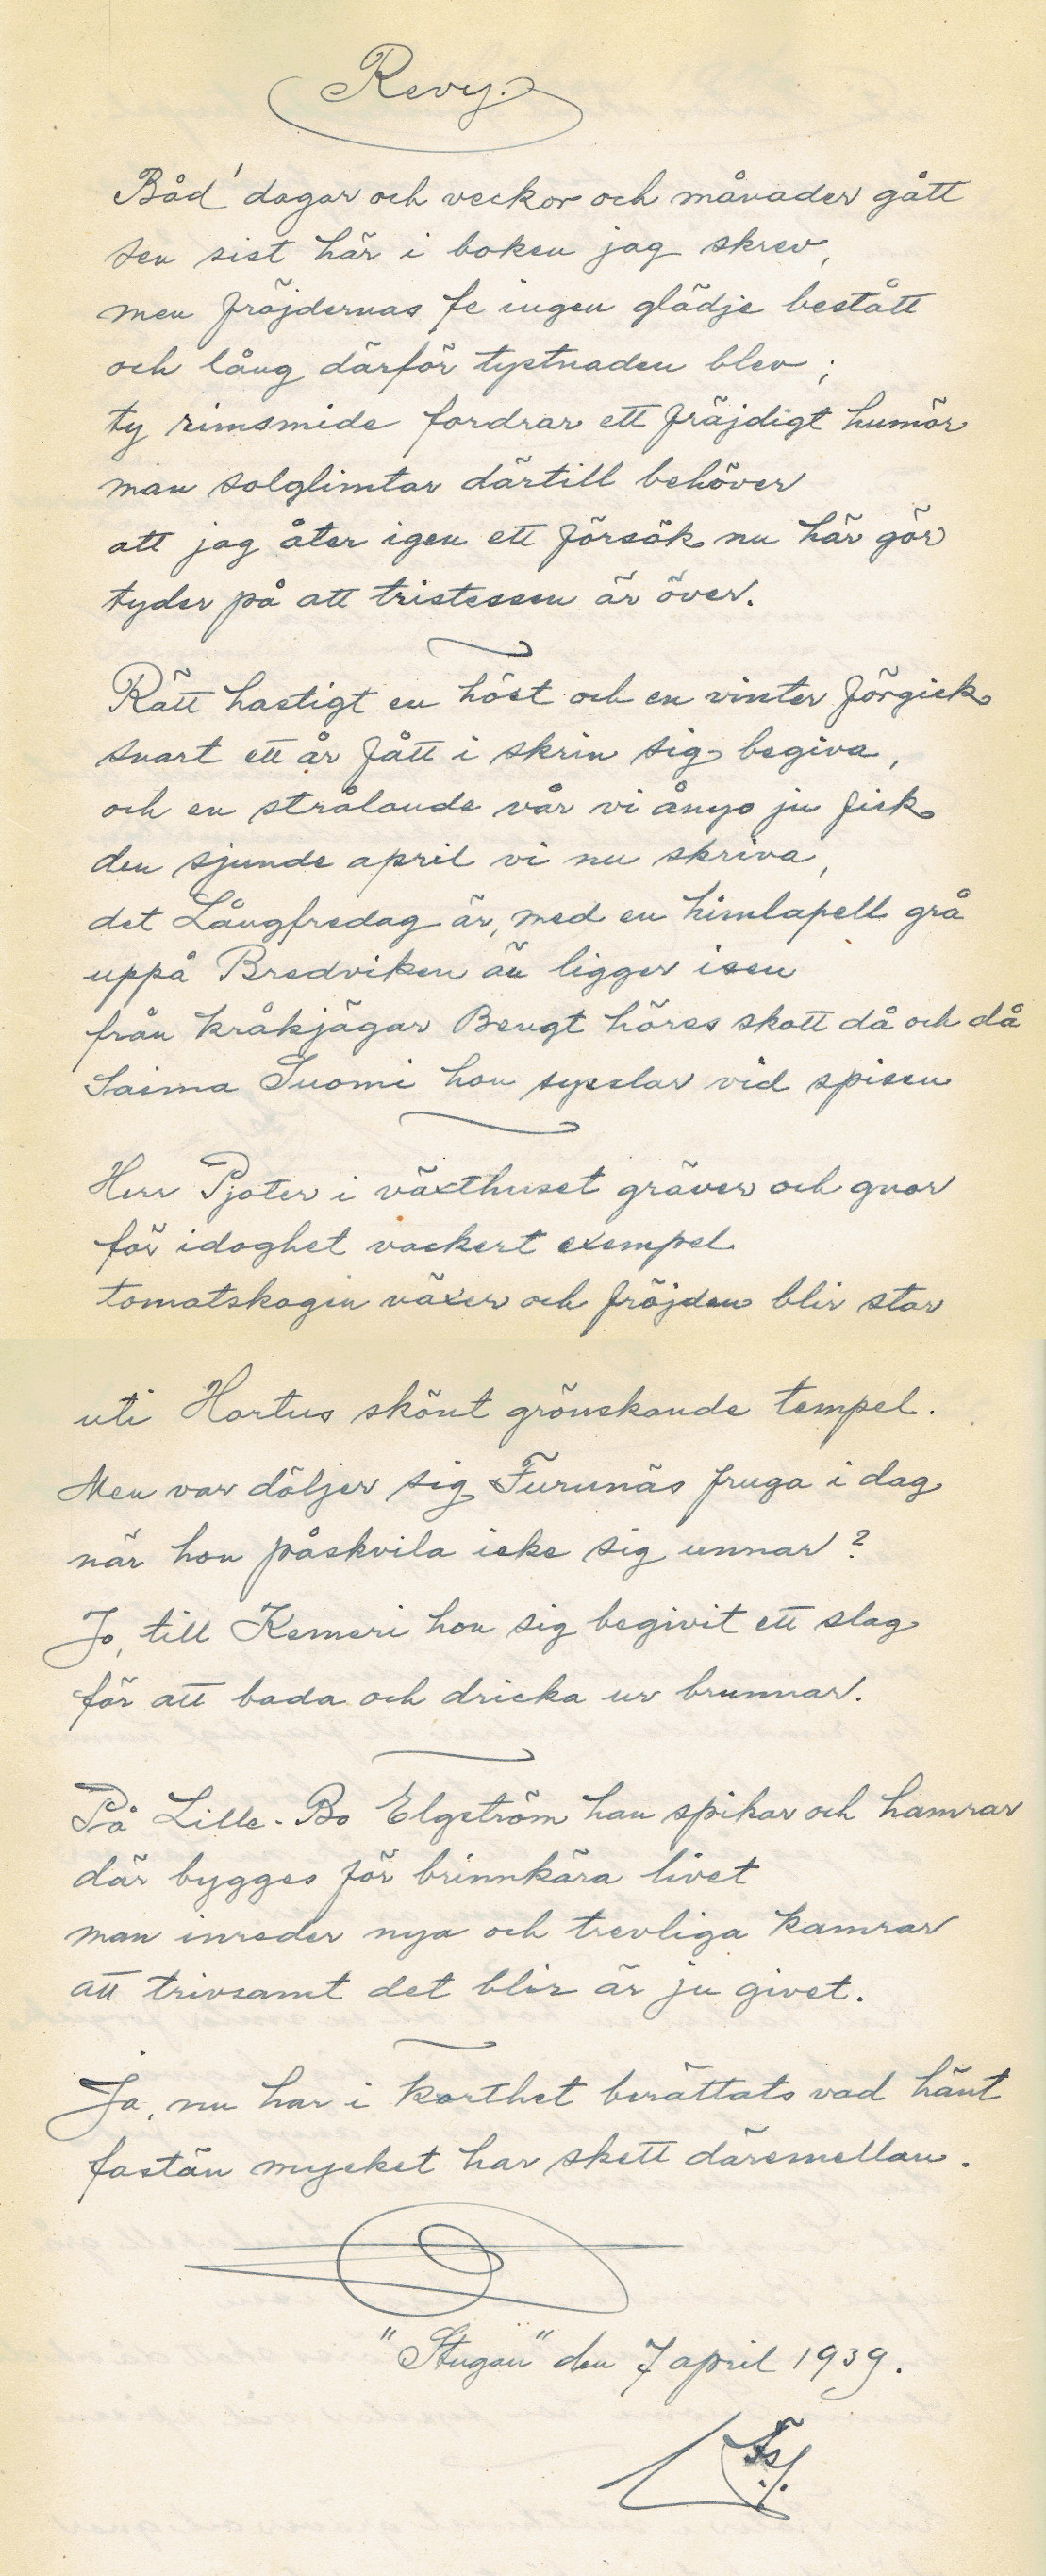 Revy.
Båd' dagar och veckor och månader gått
sen sist här i boken jag skrev,
men fröjdernas fe ingen glädje bestått
och lång därför tystnaden blev;
ty rimsmide fordrar ett fräjdigt humör
man solglimtar därtill behöver
att jag åter igen ett försök nu här gör
tyder på att tristessen är över.
Rätt hastigt en höst och en vinter förgick
snart ett år fått i skrin sig begiva,
och en strålande vår vi ånyo ju fick
den sjunde april vi nu skriva,
det Långfredag är, med en himlapell grå
uppå Bredviken än ligger isen
från kråkjägar Bengt höres skott då och då
Saima Suomi hon sysslar vid spisen
Herr Pjoter i växthuset gräver och gnor
för idoghet vackert exempel
tomatskogen växer och fröjden blir stor
uti Hortus skönt grönskande tempel.
Men var döljer sig Furunäs fruga i dag
när hon påskvila icke sig unnar?
Jo, till Kemeri hon sig begivit ett slag
för att bada och dricka ur brunnar.
På Lille-Bo Elgström han spikar och hamrar
där bygges för brinnkära livet
man inreder nya och trevliga kamrar
att trivsamt det blir är ju givet.
Ja, nu har i korthet berättats vad hänt
fastän mycket har skett däremellan.
"Stugan" den 7 april 1939.